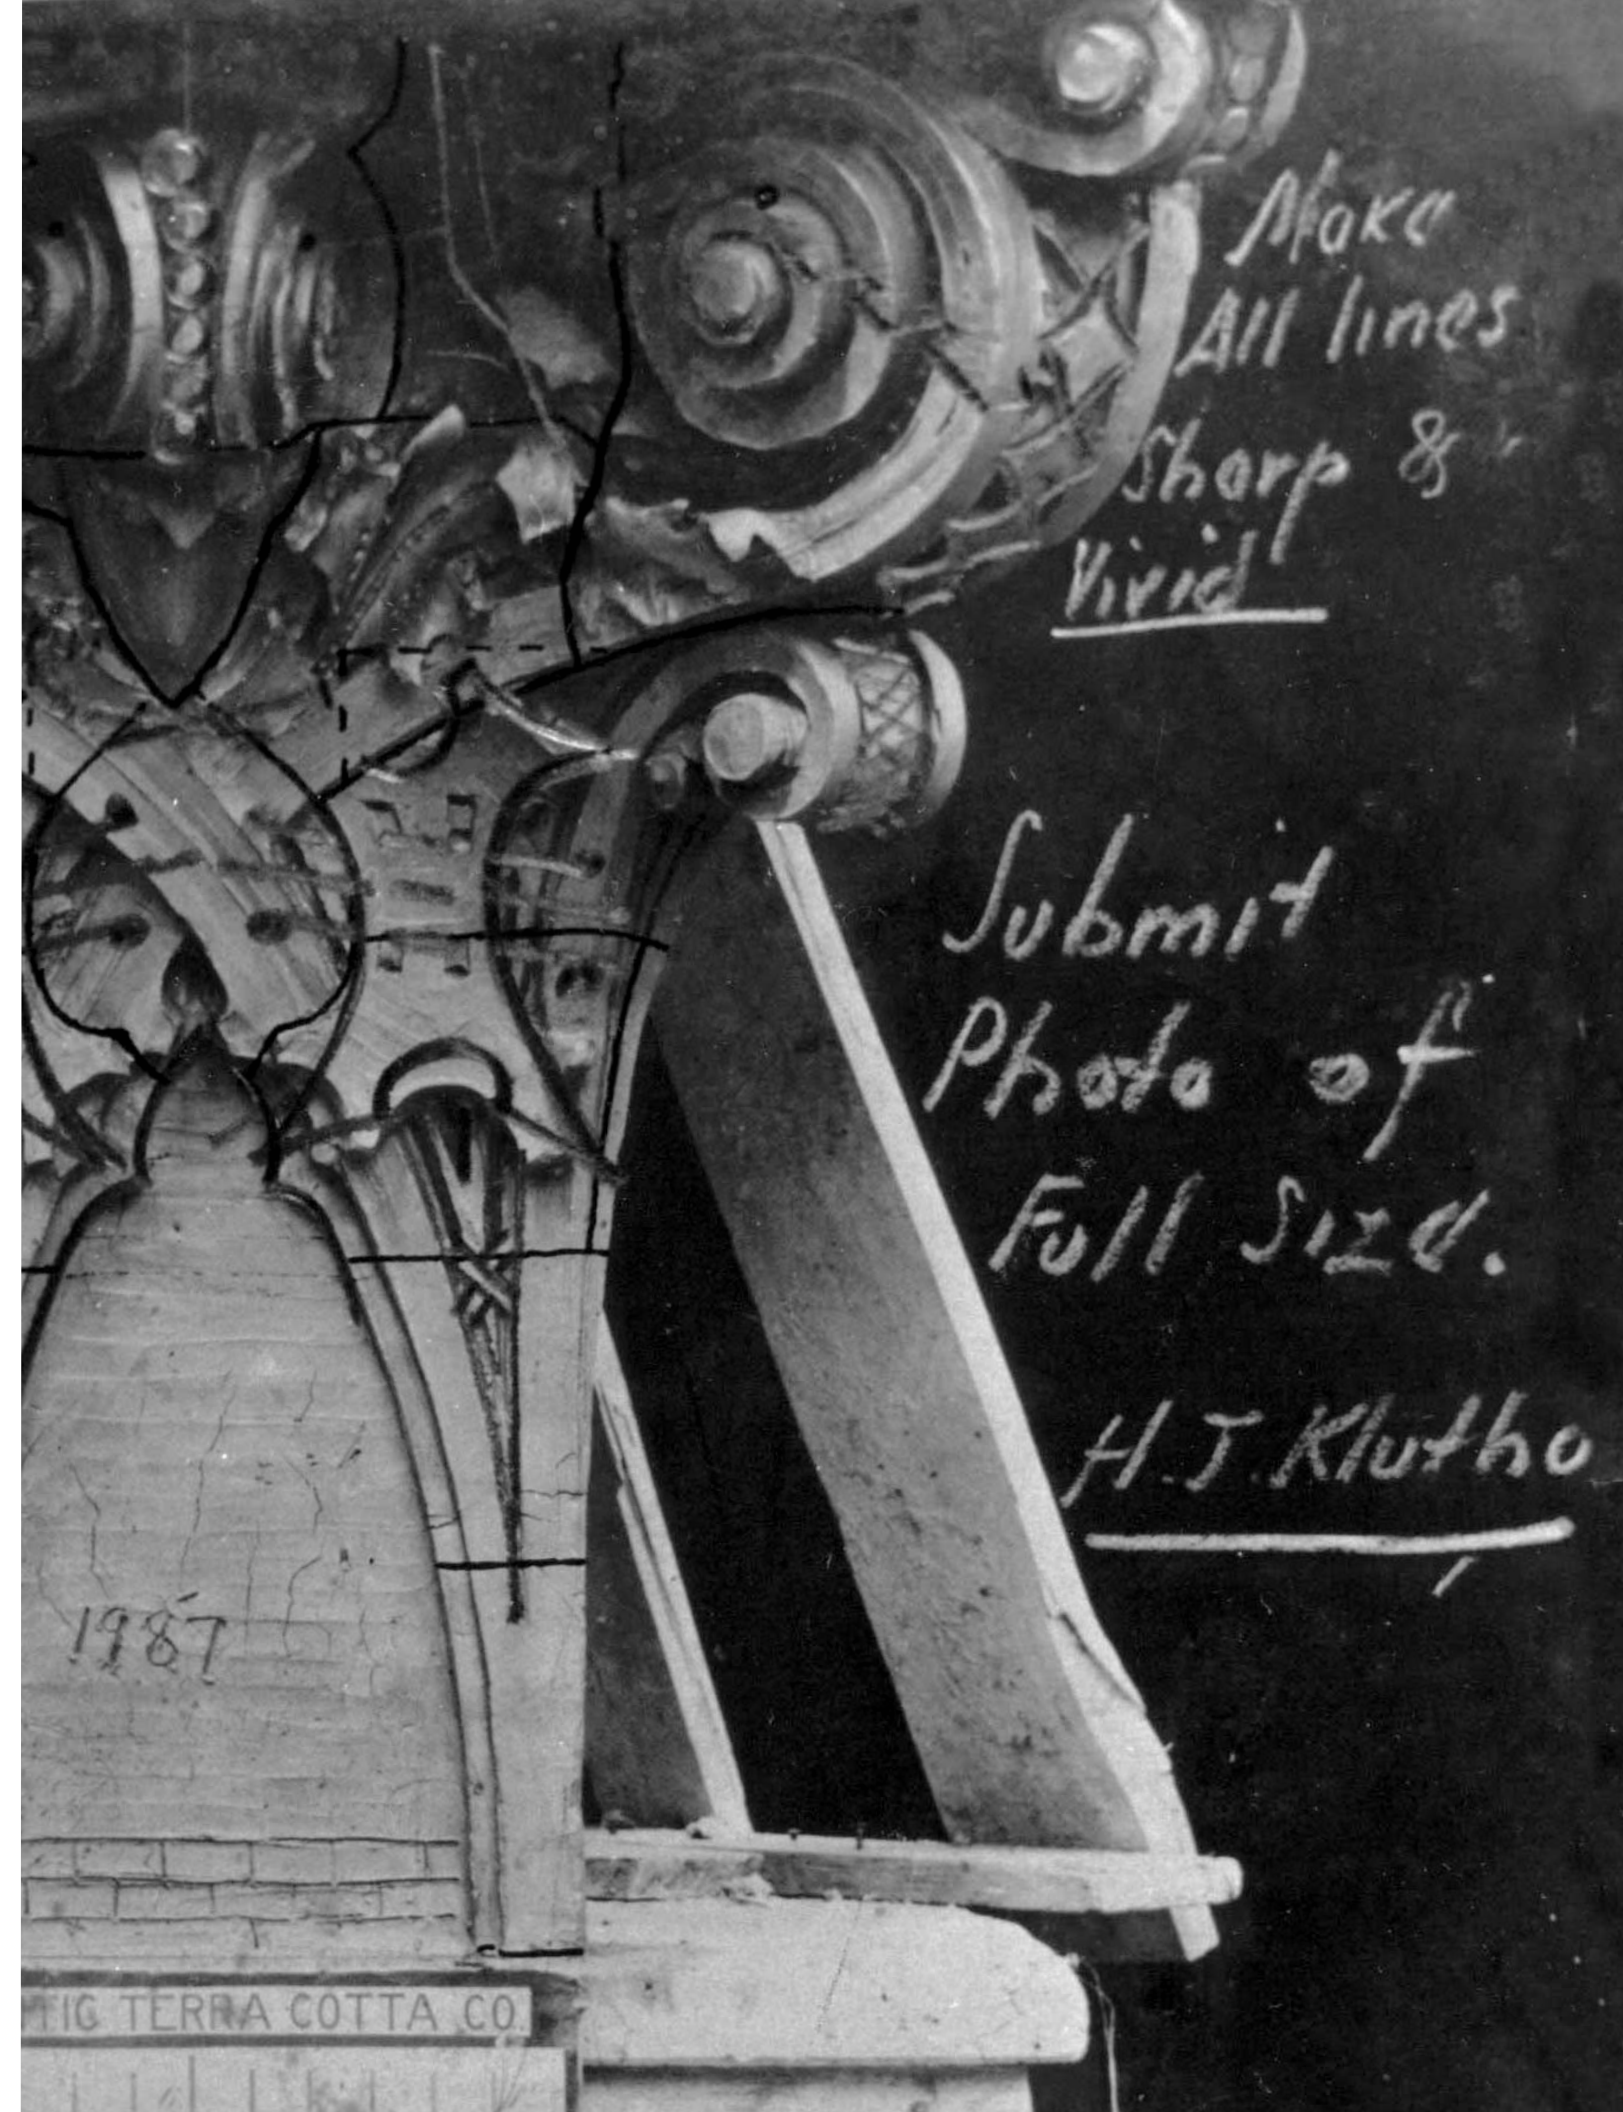 Make
All lines
Sharp &
Vivid
Submit
Photo of
Full Size.
H.J. Klutho
1987
TIC TERRA COTTA CO.